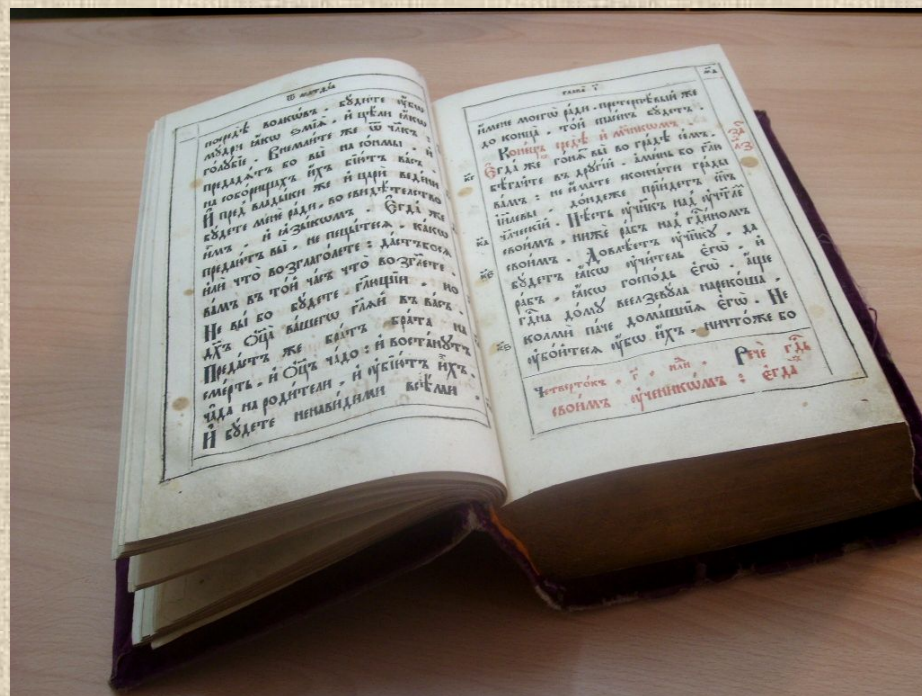 Ѿ матѳеа
посредѣ волкѡвъ . бꙋдите ᲂу҆́бѡ
мꙋдри ꙗ҆́кѡ ѕмїѧ̀ . и҆ цѣ́ли ꙗ҆́кѡ
гѡ́лꙋбїе . Внемлите же ѿ чл҃къ
предадѧ́тъ бо вы̀ на со́нмы . и҆
на соборищахъ и҆́хъ бїю́тъ ва́съ .
И҆ пред влады́ки же и҆ цари̑ веде́ни
бꙋдете менѐ ра́ди , во свидѣ́тельство
и҆̀мъ . и҆ ꙗ҆зы́кѡмъ . Є҆гда́ же
предаю́тъ вы̀ . не пецы́тесѧ . ка́кѡ
и҆лѝ что̀ возглаго́лете : да́стъбосѧ
ва́мъ въ то́й ча́съ что̀ возгл҃ете .
Не вы́ бо бꙋдете гл҃щїи . но
дх҃ъ ѻ҆ц҃а̀ ва́шегѡ гл҃ѧй въ ва́съ .
Преда́стъ же бра́тъ бра́та на
сме́рть . и҆ ѻ҆ц҃ъ ча́до : и҆ воста́нꙋтъ
ча̑да на роди́тели . и҆ ᲂу҆бїю́тъ и҆́хъ .
И҆ бꙋ́дете ненави́дими все́ми
и҆́мене моегѡ̀ ра́ди . претерпѣ́вый же
до конца̀ . то́й спасе́нъ бꙋ́детъ .
Коне́цъ средѣ̀ и҆ мч҃нкѡмъ .
Є҆гда́ же го́нѧтъ вы̀ во гра́дѣ се́мъ .
бѣ́гайте въ дрꙋгі́й . а҆ми́нь бо гл҃ю
ва́мъ : не и҆́мате сконча́ти гра́ды
і҆и҃левы . до́ндеже прїи́детъ сн҃ъ
чл҃ческїй . Нѣ́сть ᲂу҆чн҃къ над ᲂу҆чт҃лѧ
своегѡ̀ . нижѐ ра́бъ над гд҃иномъ
свои́мъ . Довлѣ́етъ ᲂу҆чн҃кꙋ . да
бꙋ́детъ ꙗ҆́кѡ ᲂу҆чи́тель є҆гѡ̀ . и҆
ра́бъ . ꙗ҆́кѡ госпо́дь є҆гѡ̀ . а҆́ще
гд҃на до́мꙋ веелзевꙋ́ла нареко́ша .
кольмѝ па́че дома́шнїѧ є҆гѡ̀ . Не
ᲂу҆бо́йтесѧ ᲂу҆́бѡ и҆́хъ . ничто́же бо
Четверто́къ . г҃ . нл҃и . Речѐ гд҃ь
свои́мъ ᲂу҆ченикѡ́мъ : є҆гда̀